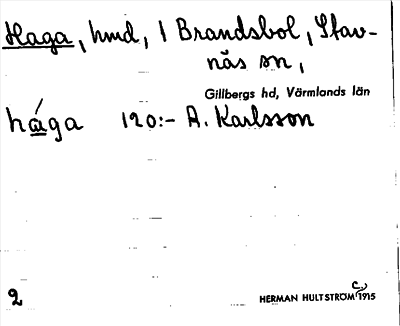 Haga, hmd, 1 Brandsbol, Stav-
näs sn,
Gillbergs hd, Värmlands län
håga 120:- A. Karlsson
2 HERMAN HULTSTRÖM C. 1915